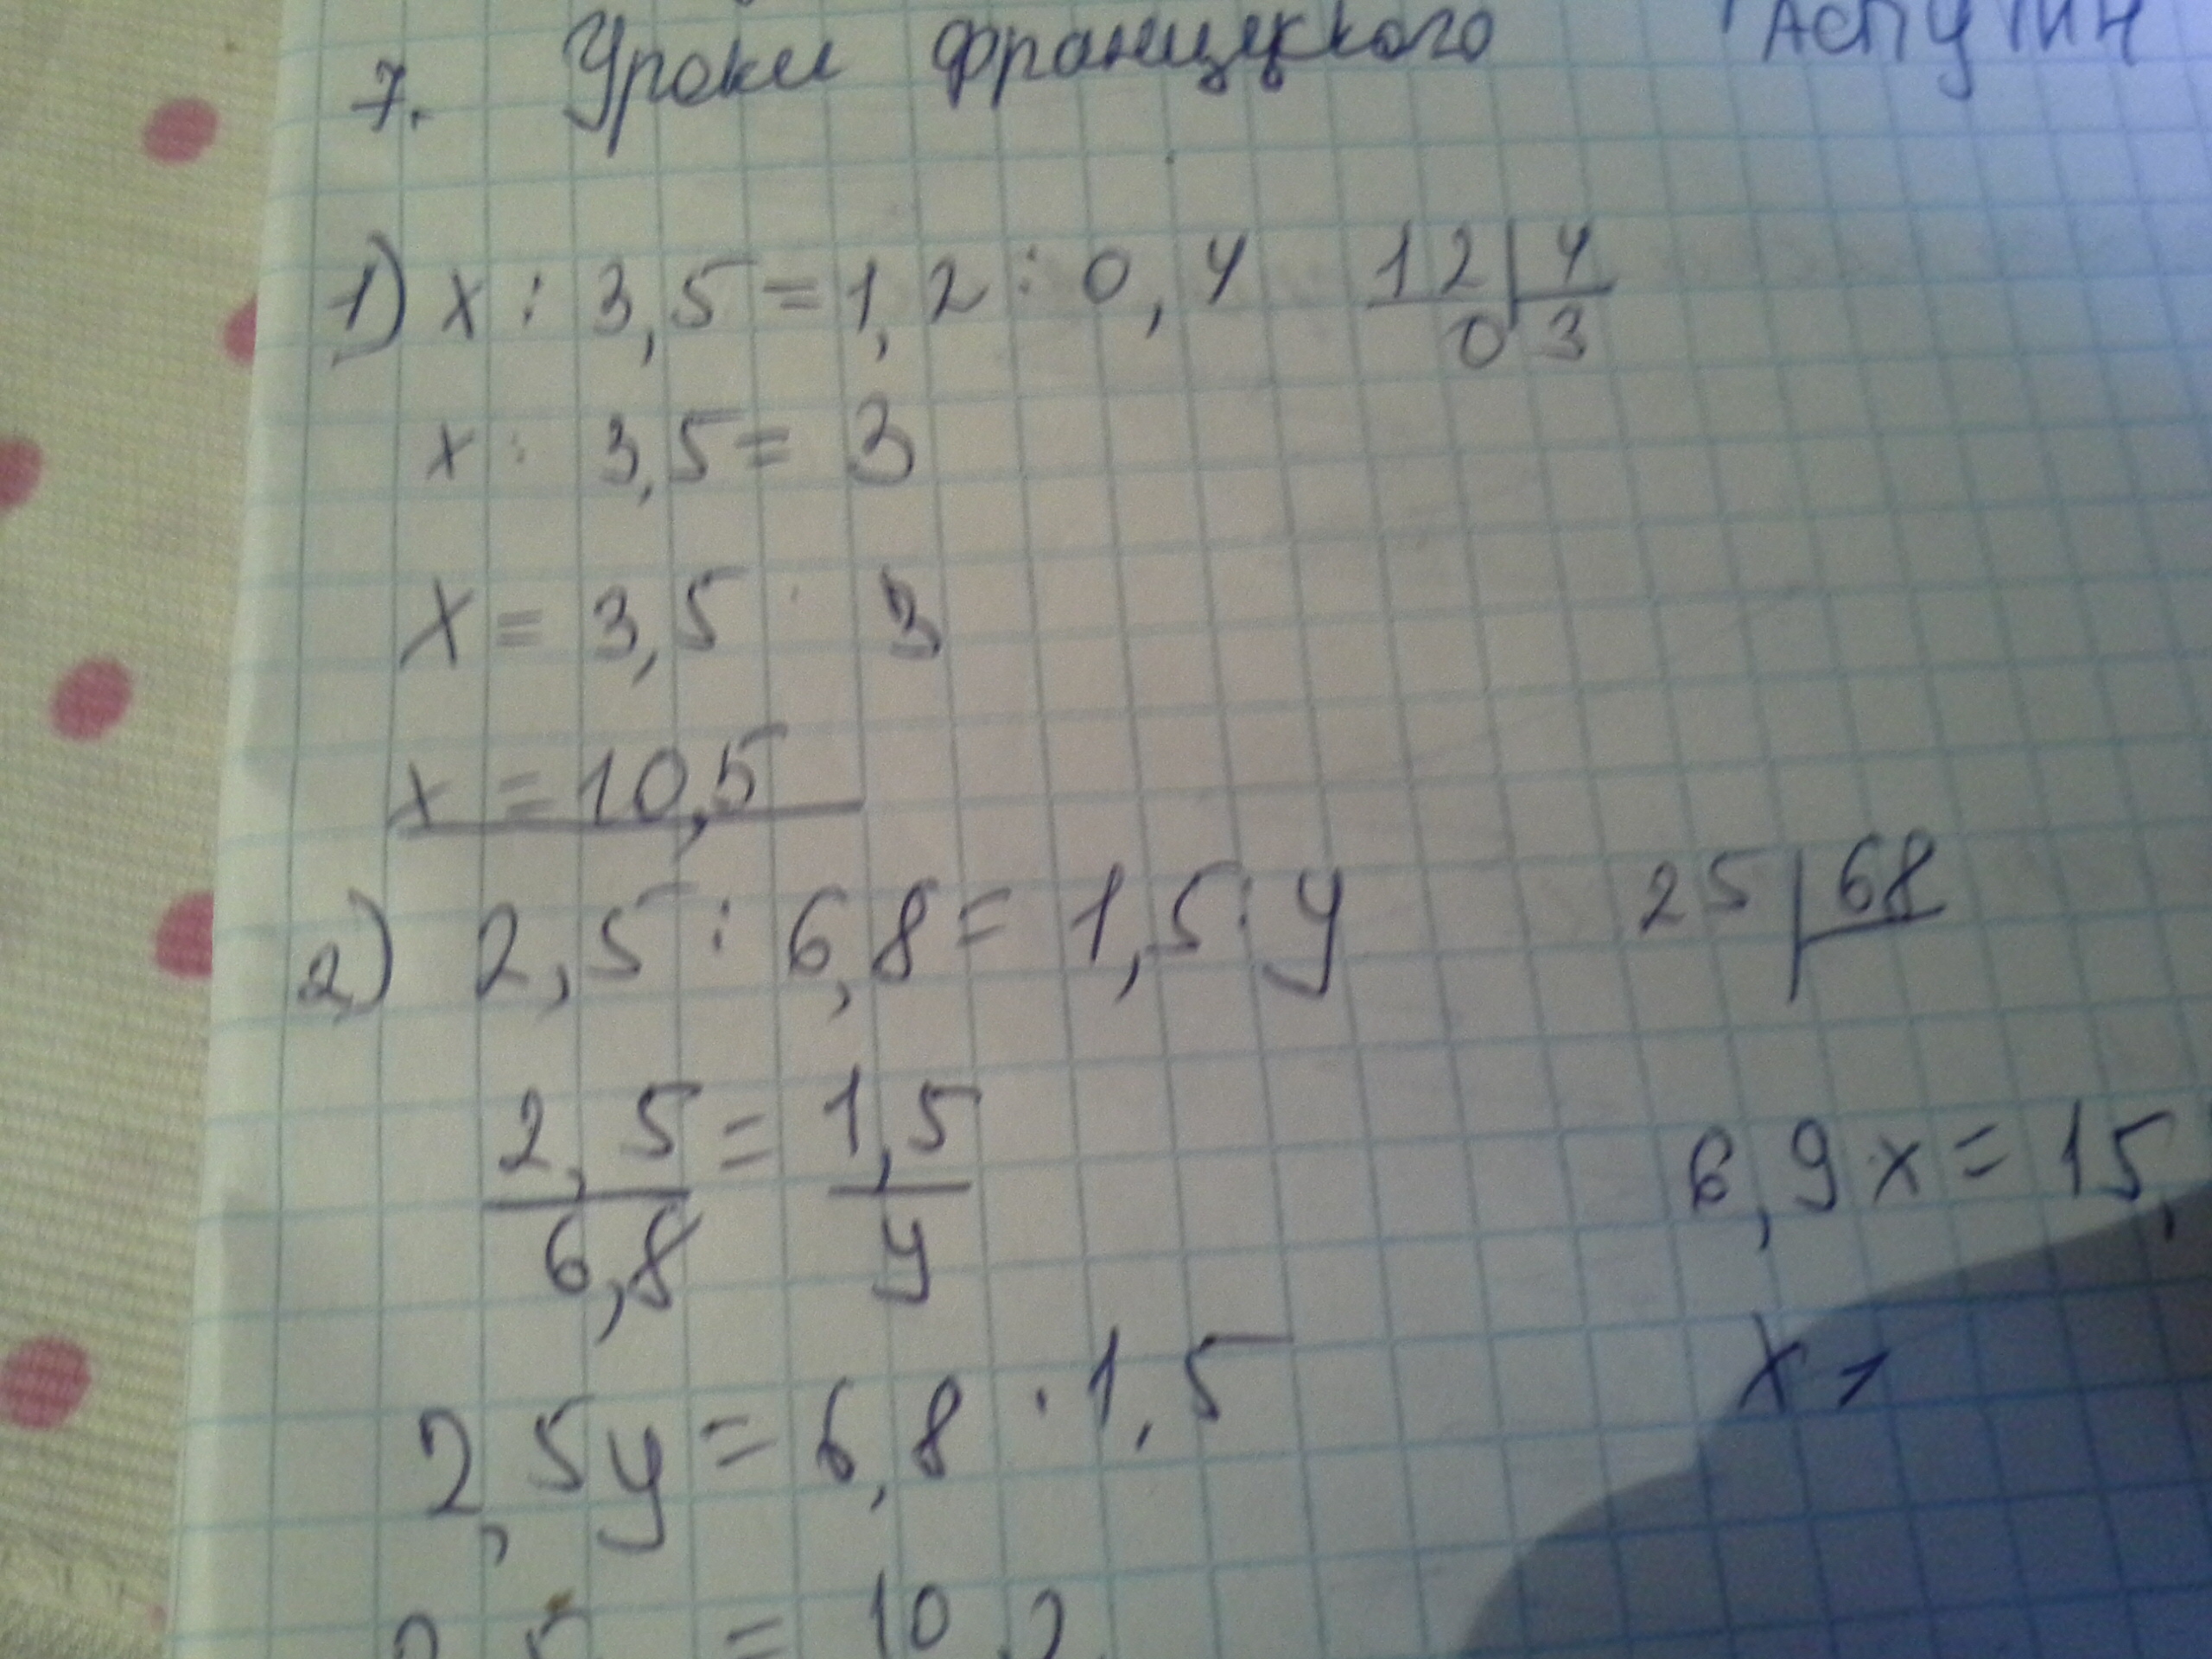 7. Уроки французкого Распутин
1) x : 3,5 = 1,2 : 0,4 12 | 4
0 3
x : 3,5 = 3
x = 3,5 · 3
x = 10,5
2) 2,5 : 6,8 = 1,5 : y 25 | 68
2,5 = 1,5
6,8 y
6,9x = 15,
x
2,5y = 6,8 · 1,5
= 10,2